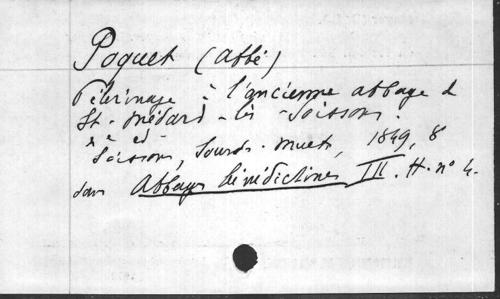 Poquet (abbé)
Pélerinage à l'ancienne abbaye de
St-Médard-lès-Soissons.
2e ed-
Soissons, Sourds-muets, 1849, 8
dans Abbayes bénédictines III. H. no 4.